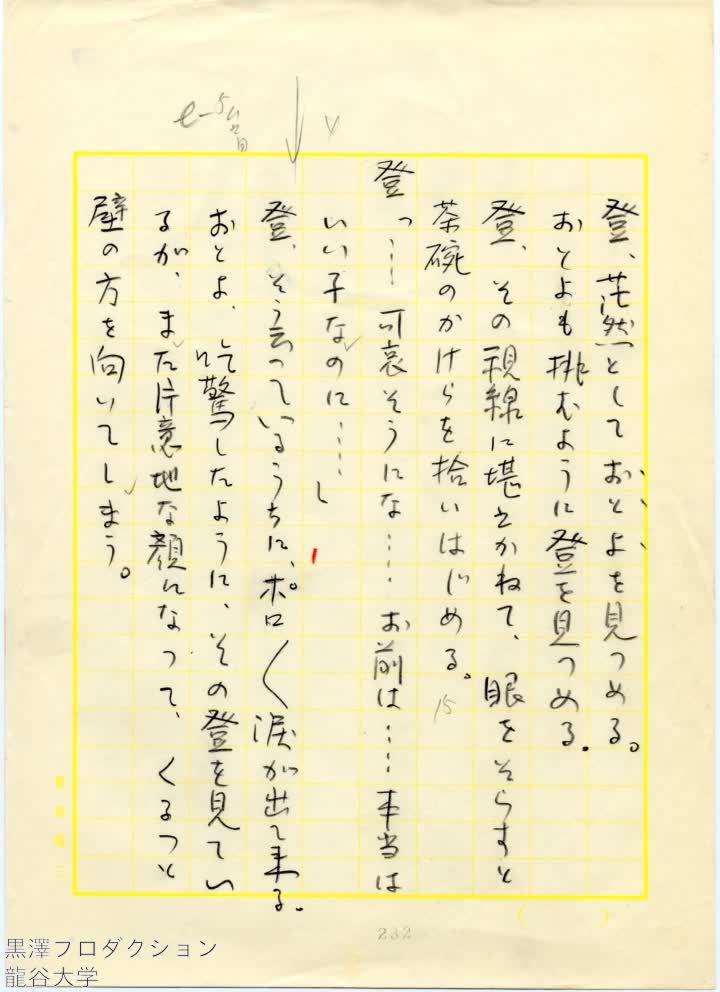 登、茫然としておとよを見つめる。
おとよも挑むように登を見つめる。
登、その視線に堪えかねて、眼をそらすと
茶碗のかけらを拾いはじめる。15
登っ……可哀そうにな……お前は……本当は
いい子なのに……」
登、そう云っているうちに、ポロ〱涙が出て来る。
おとよ、吃驚したように、その登を見てい
るが、また片意地な顔になって、くるっと
壁の方を向いてしまう。
232
黒澤プロダクション
龍谷大学